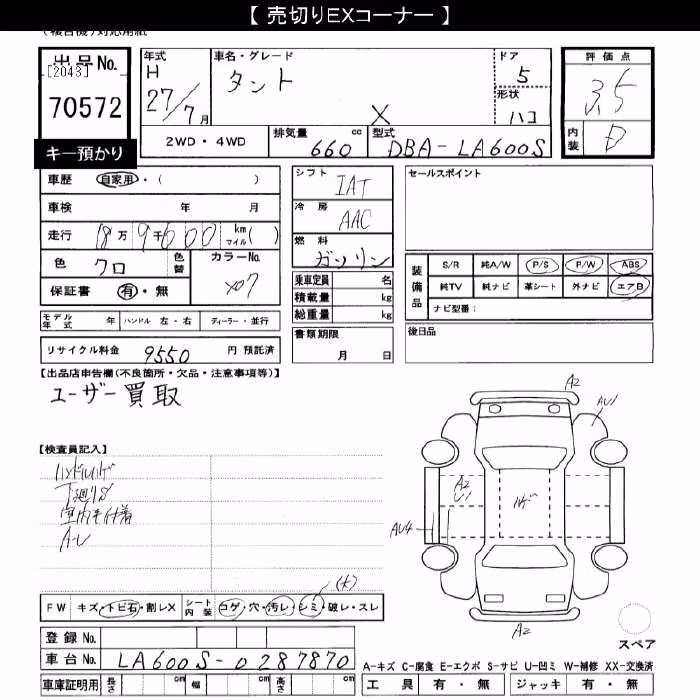 【 売切りEXコーナー 】
(複合機)対応用紙
出品No.
[2043]
70572
キー預かり
年式
H
27/7月
車名・グレード
タント
X
ドア
5
形状
ハコ
評価点
3.5
内装
D
2WD・4WD
排気量 660 cc
型式 DBA-LA600S
車歴 自家用・( )
車検 年 月
走行 18万9千600 km マイル( )
色 クロ
色替
カラーNo.
X07
保証書 有・無
シフト
IAT
冷房
AAC
燃料
ガソリン
乗車定員 名
積載量 kg
総重量 kg
セールスポイント
装備品
S/R 純A/W P/S P/W ABS
純TV 純ナビ 革シート 外ナビ エアB
ナビ型番:
モデル年式 年 ハンドル 左・右 ディーラー・並行
書類期限
月 日
後日品
リサイクル料金 9550 円 預託済
【出品店申告欄(不良箇所・欠品・注意事項等)】
ユーザー買取
【検査員記入】
ハンドルハゲ
下廻りS
室内キ付着
A-U
A2
AU1
A2
U1
ハゲ
AU4
A2
スペア
(大)
FW キズ・トビ石・割レX シート内装 コゲ・穴・汚レ・シミ・破レ・スレ
登録No.
車台No. LA600S-0287870
車庫証明用 長さ cm 幅 cm 高さ cm
A-キズ C-腐食 E-エクボ S-サビ U-凹ミ W-補修 XX-交換済
工具 有・無 ジャッキ 有・無